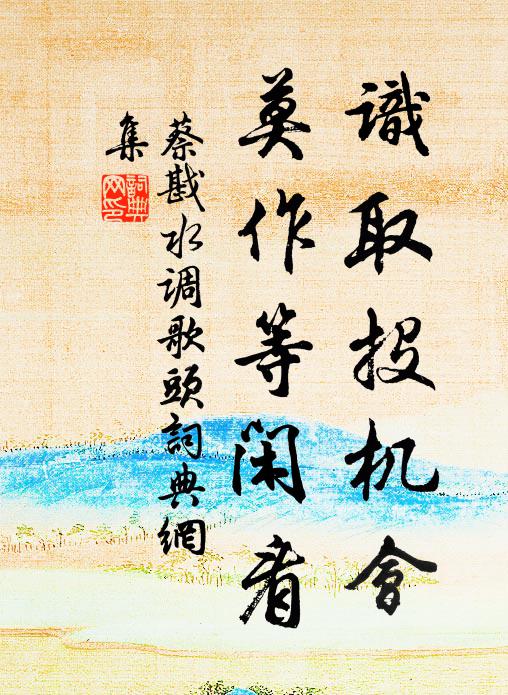 識取投机會
莫作等闲看
蔡戡水调歌頭詞典網
集
詞典
网印